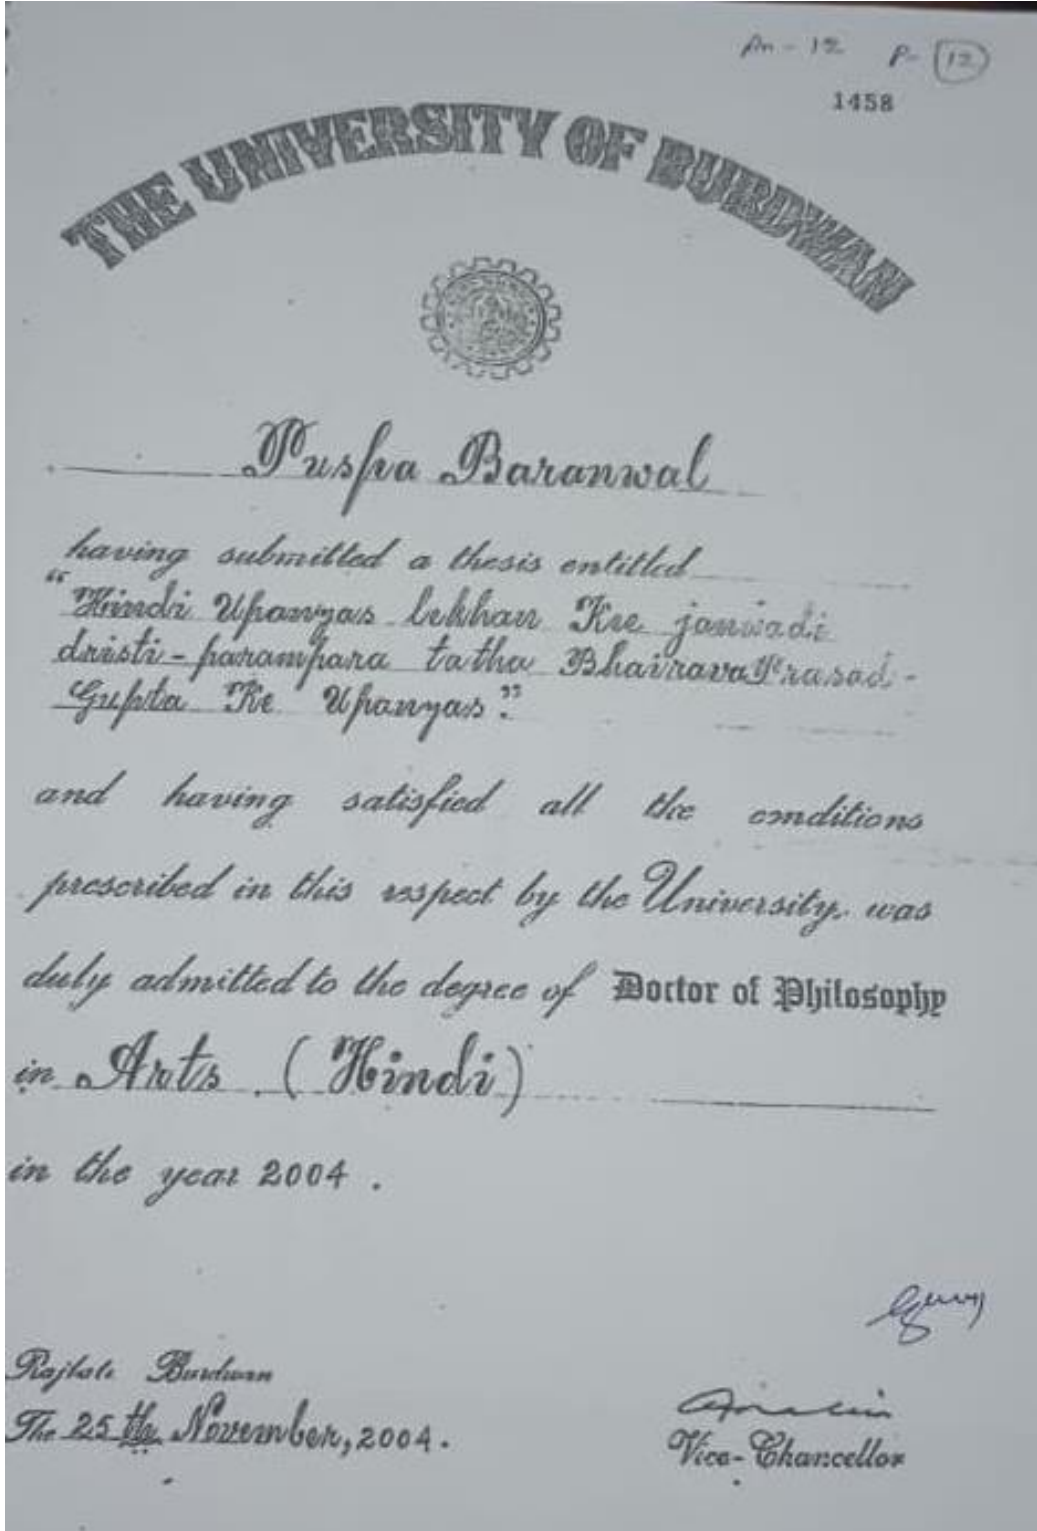 An - 12 P- 12
1458
THE UNIVERSITY OF BURDWAN
Puspa Baranwal
having submitted a thesis entitled
"Hindi Upanyas lekhan Kee janwadi
dristi-parampara tatha Bhairava Prasad-
Gupta Ke Upanyas".
and having satisfied all the conditions
prescribed in this respect by the University, was
duly admitted to the degree of Doctor of Philosophy
in Arts (Hindi)
in the year 2004.
Rajbati Burdwan
The 25th November, 2004.
Vice-Chancellor